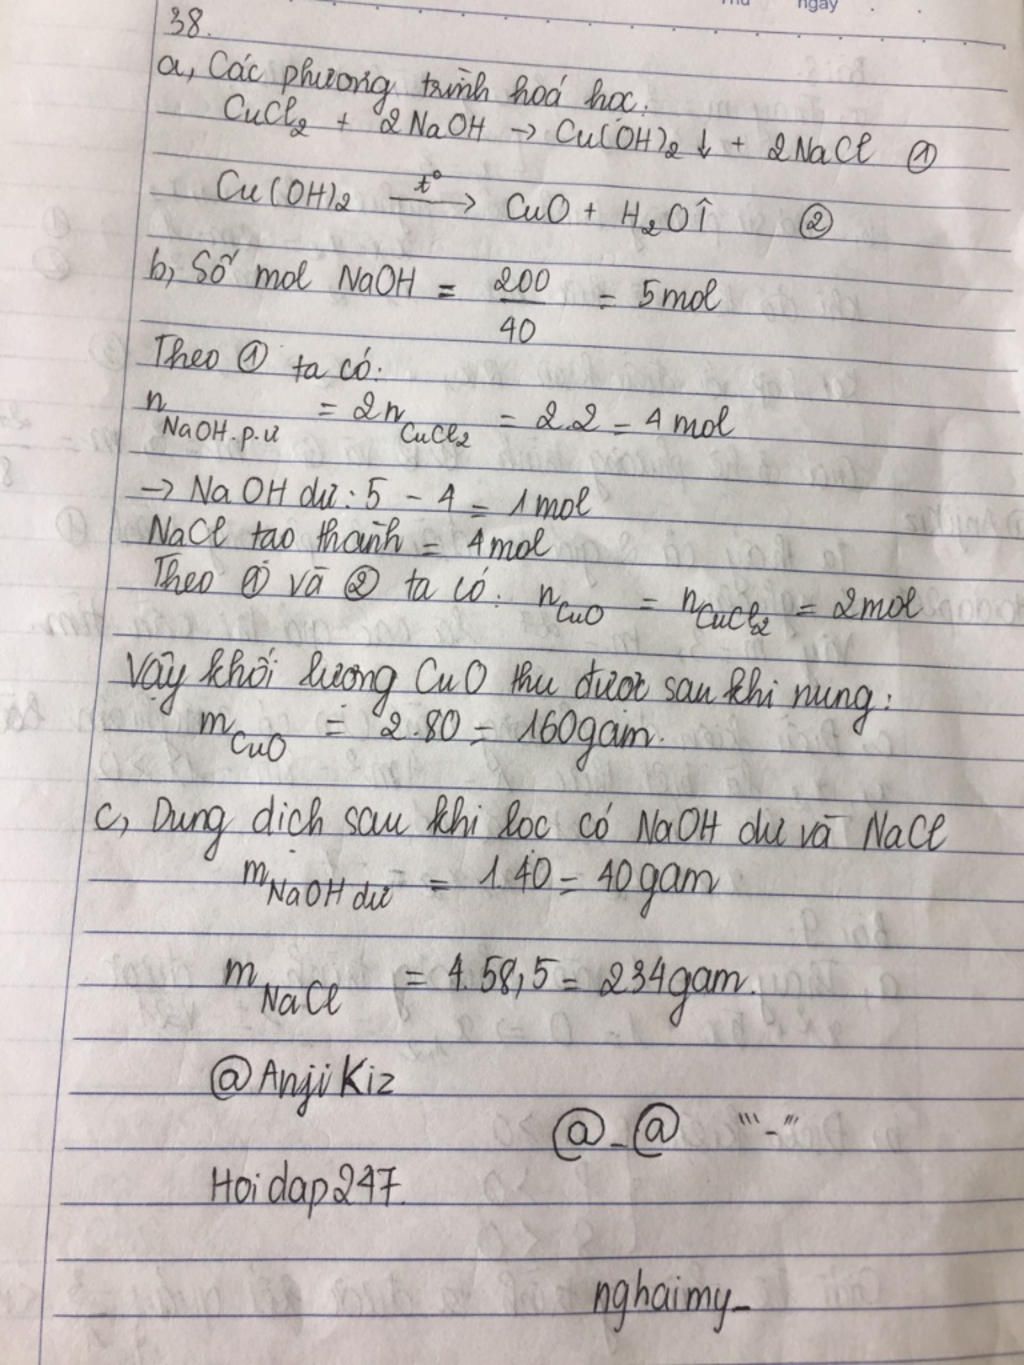 ngày
38.
a, Các phương trình hoá học.
CuCl2 + 2NaOH → Cu(OH)2 ↓ + 2NaCl ①
Cu(OH)2 t° → CuO + H2O↑ ②
b, Số mol NaOH = 200/40 = 5mol
Theo ① ta có:
n NaOH.p.ư = 2n CuCl2 = 2.2 = 4 mol
→ NaOH dư: 5 - 4 = 1mol
NaCl tạo thành = 4mol
Theo ① và ② ta có: nCuO = nCuCl2 = 2mol
Vậy khối lượng CuO thu được sau khi nung:
mCuO = 2.80 = 160gam.
c, Dung dịch sau khi lọc có NaOH dư và NaCl
mNaOH dư = 1.40 = 40gam
mNaCl = 4.58,5 = 234gam.
@Anji Kiz
@_@ "'-'"
Hoidap247.
nghaimy_